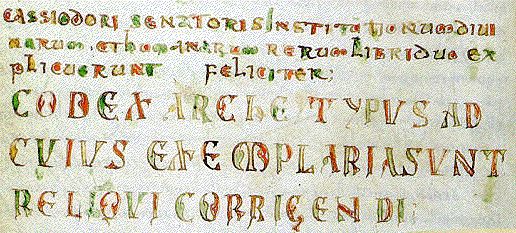 CASSIODORI SENATORIS INSTITUTIONUM DIVI
NARUM. ET HUMANARUM RERUM LIBRI DUO EX
PLICUERUNT FELICITER;
CODEX ARCHETYPUS AD
CUIUS EXEMPLARIA SUNT
RELIQUI CORRIGENDI;